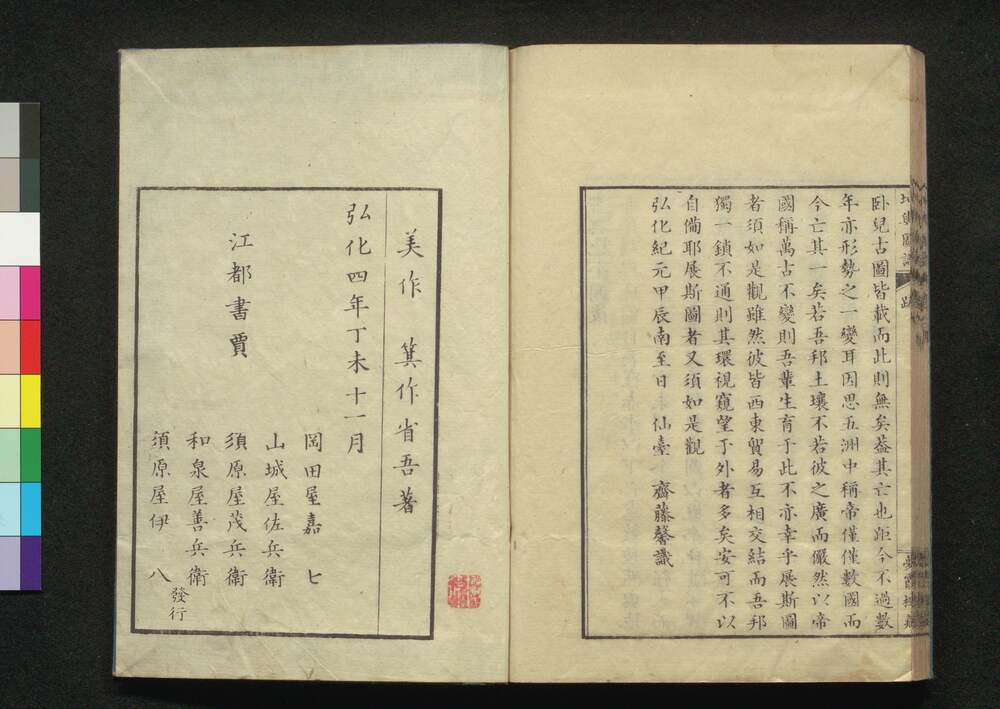 臥兒古圖皆載而此則無矣蓋其亡也距今不過數
年亦形勢之一變耳因思五洲中稱帝僅僅數國而
今亡其一矣若吾邦土壤不若彼之廣而儼然以帝
國稱萬古不變則吾輩生育于此不亦幸乎展斯圖
者須如是觀雖然彼皆西東貿易互相交結而吾邦
獨一鎖不通則其環視窺望于外者多矣安可不以
自備耶展斯圖者又須如是觀
弘化紀元甲辰南至日 仙臺 齋藤馨識
美作 箕作省吾著
弘化四年丁未十一月
江都書賈
岡田屋嘉七
山城屋佐兵衛
須原屋茂兵衛
和泉屋善兵衛
須原屋伊八
發行